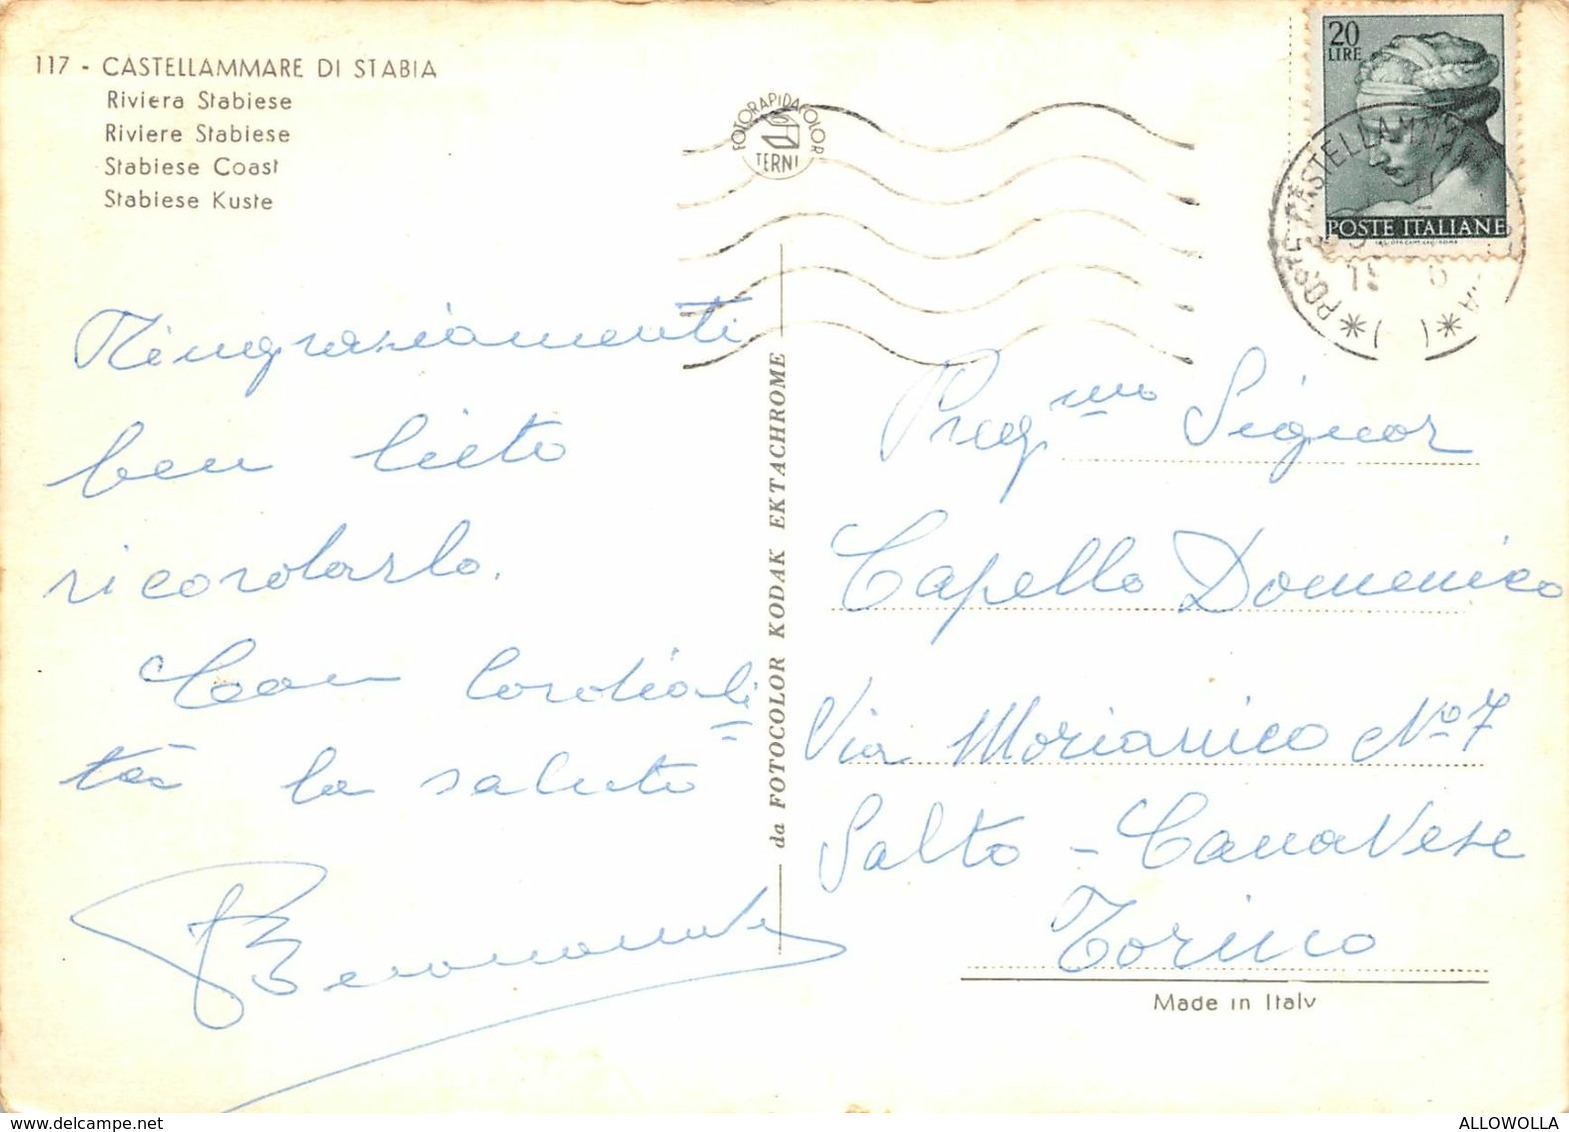 117 - CASTELLAMMARE DI STABIA
Riviera Stabiese
Riviere Stabiese
Stabiese Coast
Stabiese Kuste
FOTORAPIDACOLOR
TERNI
20
LIRE
POSTE ITALIANE
POSTE CASTELLAMMARE
Ringraziamenti
ben lieto
ricordarlo.
Con Cordiali
tà la saluto
da FOTOCOLOR KODAK EKTACHROME
Preg.mo Signor
Capello Domenico
Via Morianico No 7
Salto - CanaVese
Torino
Made in Italy
ALLOWOLLA